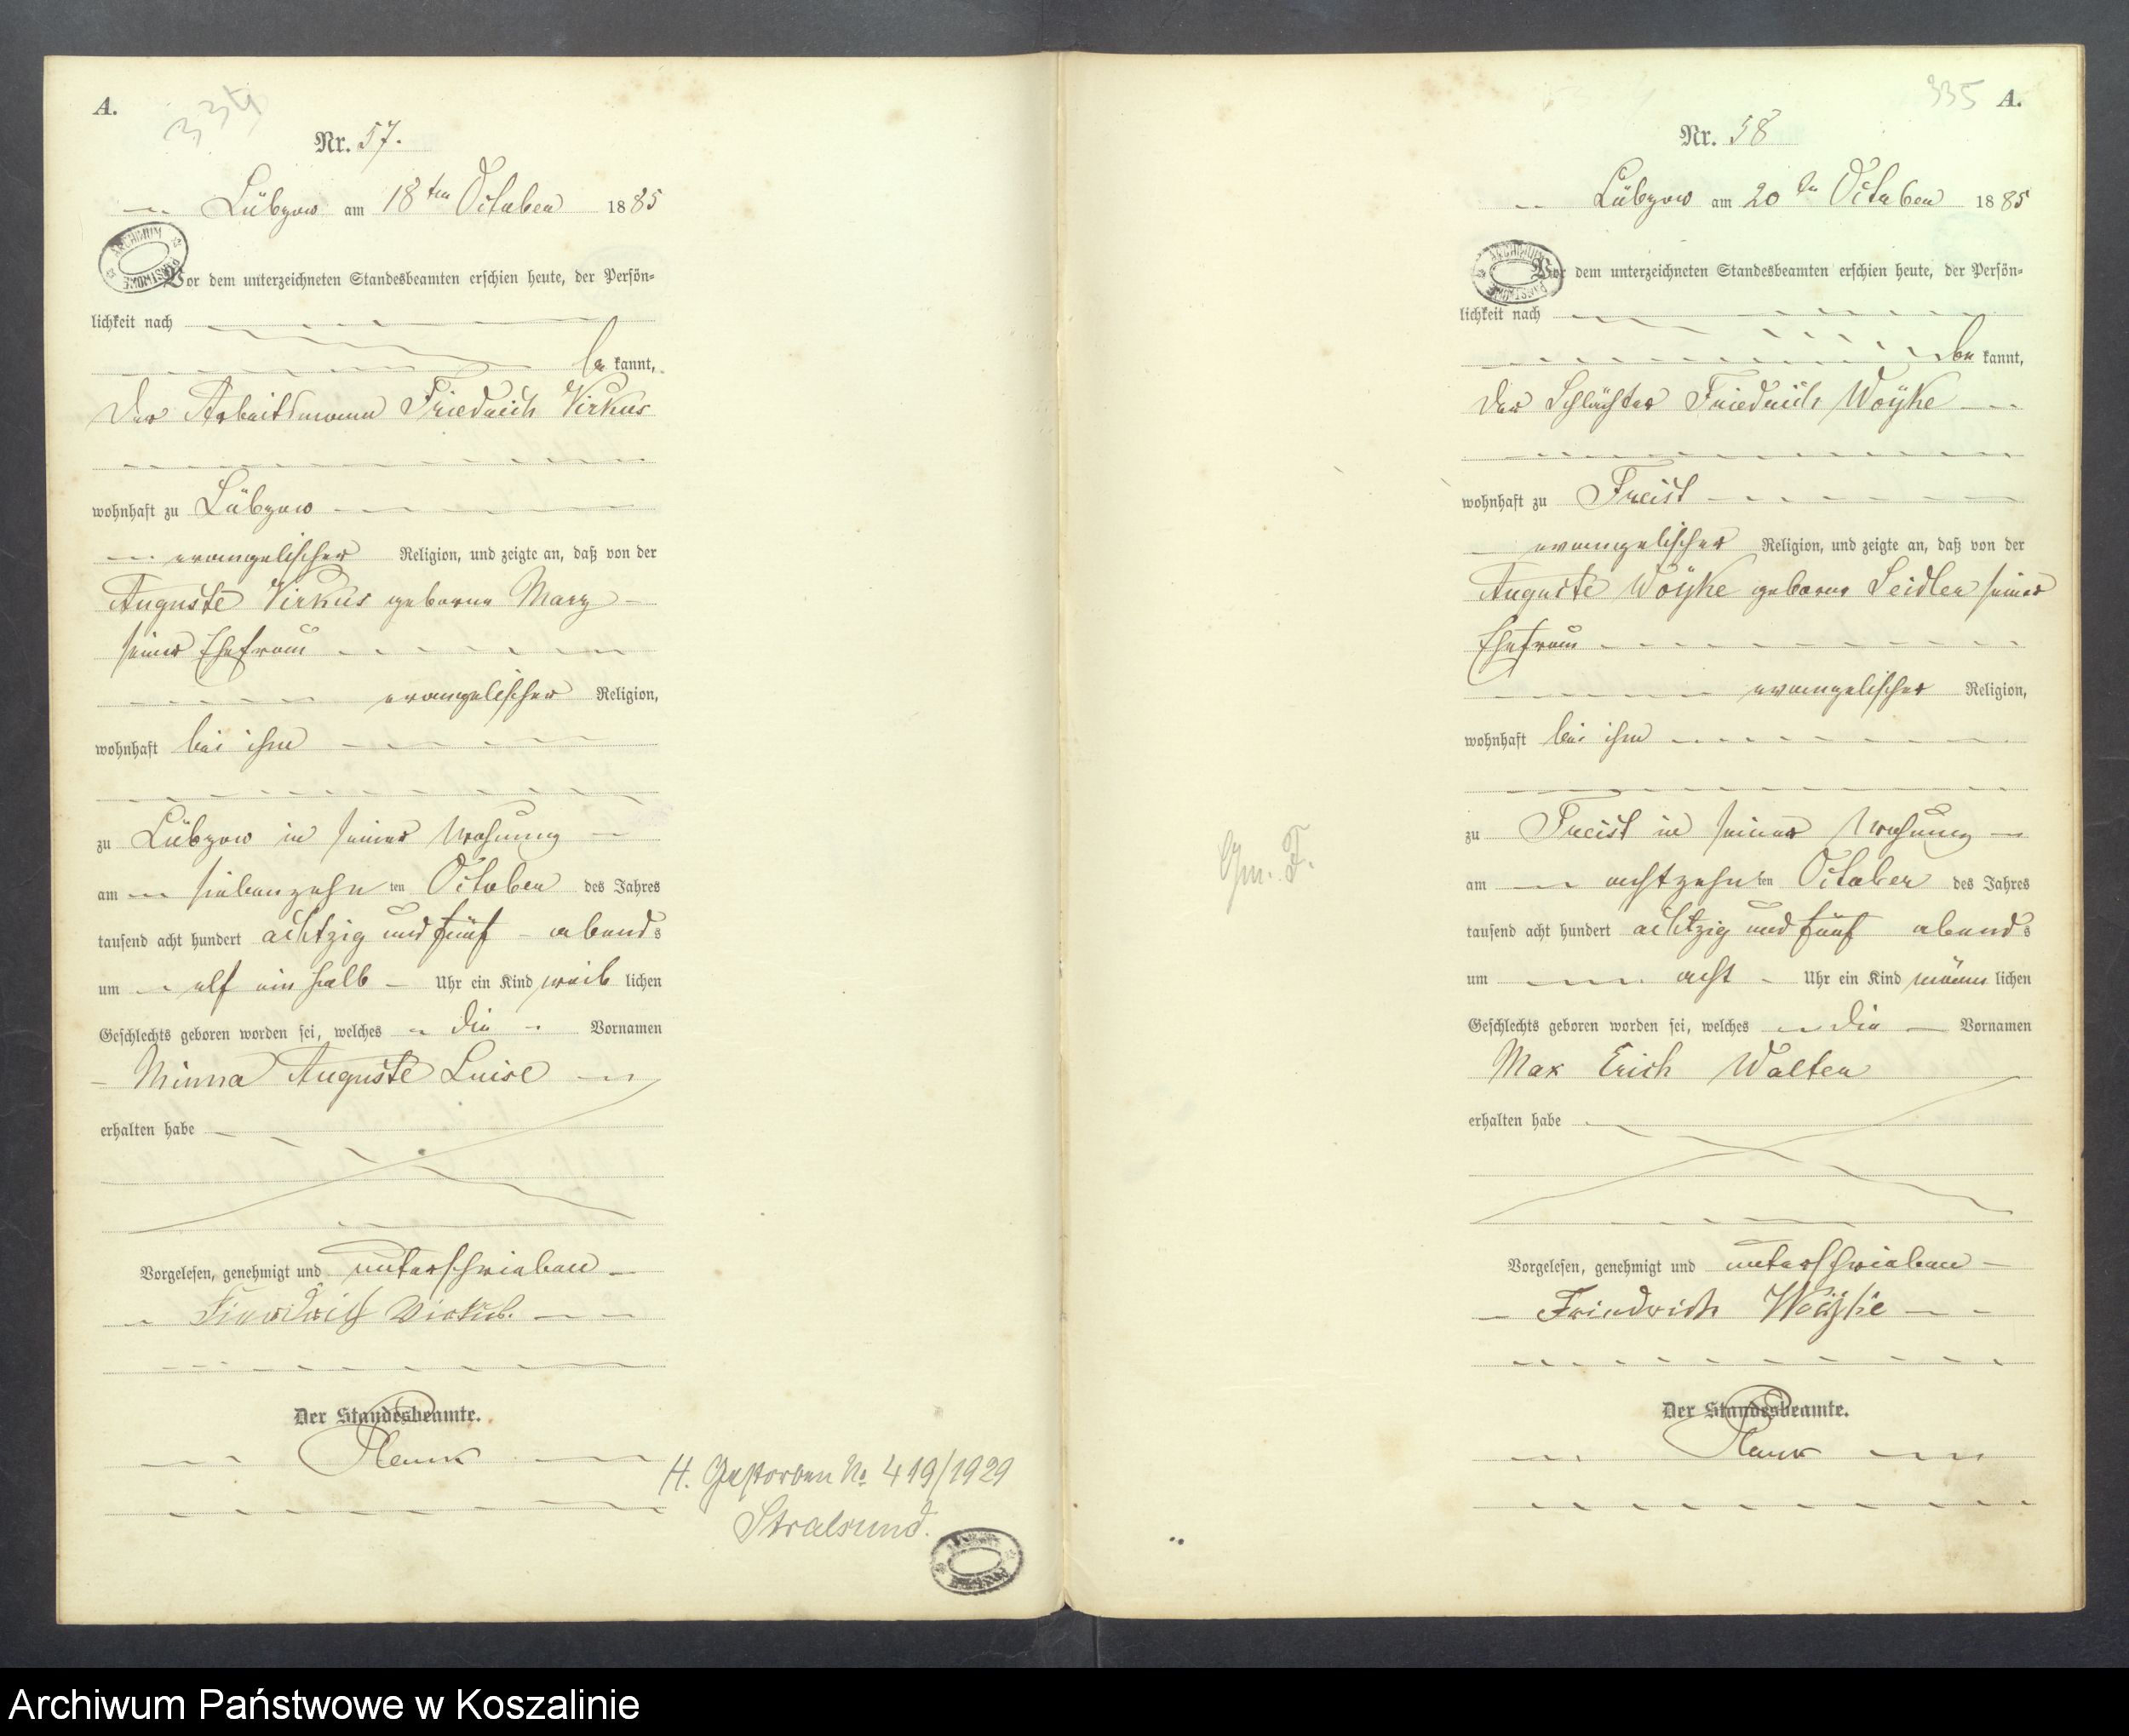 A.
334
Nr. 57.
Lübzow am 18ten October 1885
ARCHIWUM
Vor dem unterzeichneten Standesbeamten erschien heute, der Persön=
lichkeit nach
be kannt,
der Arbeitsmann Friedrich Virkus
wohnhaft zu Lübzow
evangelischer Religion, und zeigte an, daß von der
Auguste Virkus geborne Marz
seiner Ehefrau
evangelischer Religion,
wohnhaft bei ihm
zu Lübzow in seiner Wohnung
am siebenzehn ten October des Jahres
tausend acht hundert achtzig und fünf abends
um elf ein halb Uhr ein Kind weib lichen
Geschlechts geboren worden sei, welches die Vornamen
Minna Auguste Luise
erhalten habe
Vorgelesen, genehmigt und unterschrieben
Friedrich Virkus.
Der Standesbeamte.
H. Gestorben No 419/1929
Stralsund.
335 A.
Nr. 58
Lübzow am 20ten October 1885
ARCHIWUM
Vor dem unterzeichneten Standesbeamten erschien heute, der Persön=
lichkeit nach
be kannt,
der Schlächter Friedrich Woÿke
wohnhaft zu Freist
evangelischer Religion, und zeigte an, daß von der
Auguste Woÿke geborne Seidler seiner
Ehefrau
evangelischer Religion,
wohnhaft bei ihm
zu Freist in seiner Wohnung
am achtzehn ten October des Jahres
tausend acht hundert achtzig und fünf abends
um acht Uhr ein Kind männ lichen
Geschlechts geboren worden sei, welches die Vornamen
Max Erich Walter
erhalten habe
Vorgelesen, genehmigt und unterschrieben
Friedrich Woÿke
Der Standesbeamte.
Archiwum Państwowe w Koszalinie